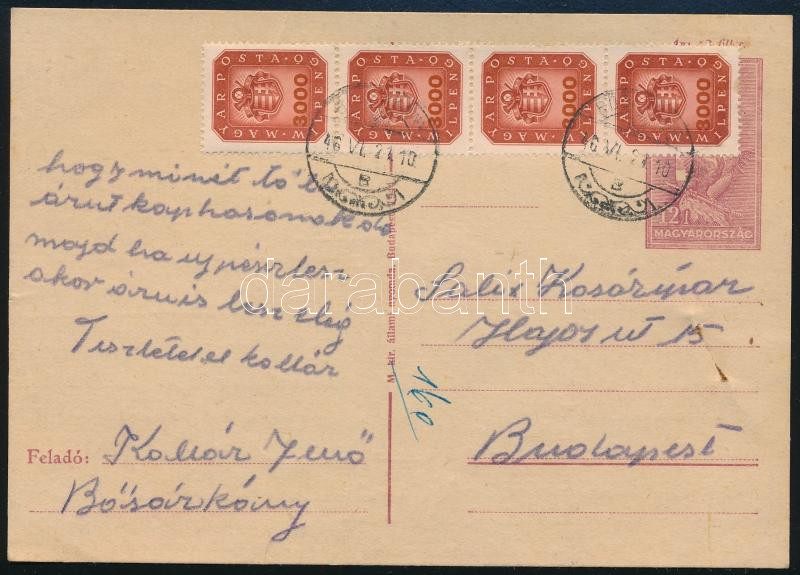 MAGYAR POSTA
3000
MILPENGŐ
MAGYAR POSTA
3000
MILPENGŐ
MAGYAR POSTA
3000
MILPENGŐ
MAGYAR POSTA
3000
MILPENGŐ
46 VI. 21 10
B
46 VI. 21 10
B
12 f
MAGYARORSZÁG
hogy minét
árut kaphasonak de
majd ha uj pészlesz
akor áru is lesz elég
Tisztelettel Kollár
Feladó: Kollár Jenő
Bősárkány
M. kir. állami nyomda, Budapest
160
Salix Kosárgyár
Hajos ut 15
Budapest
darabanth